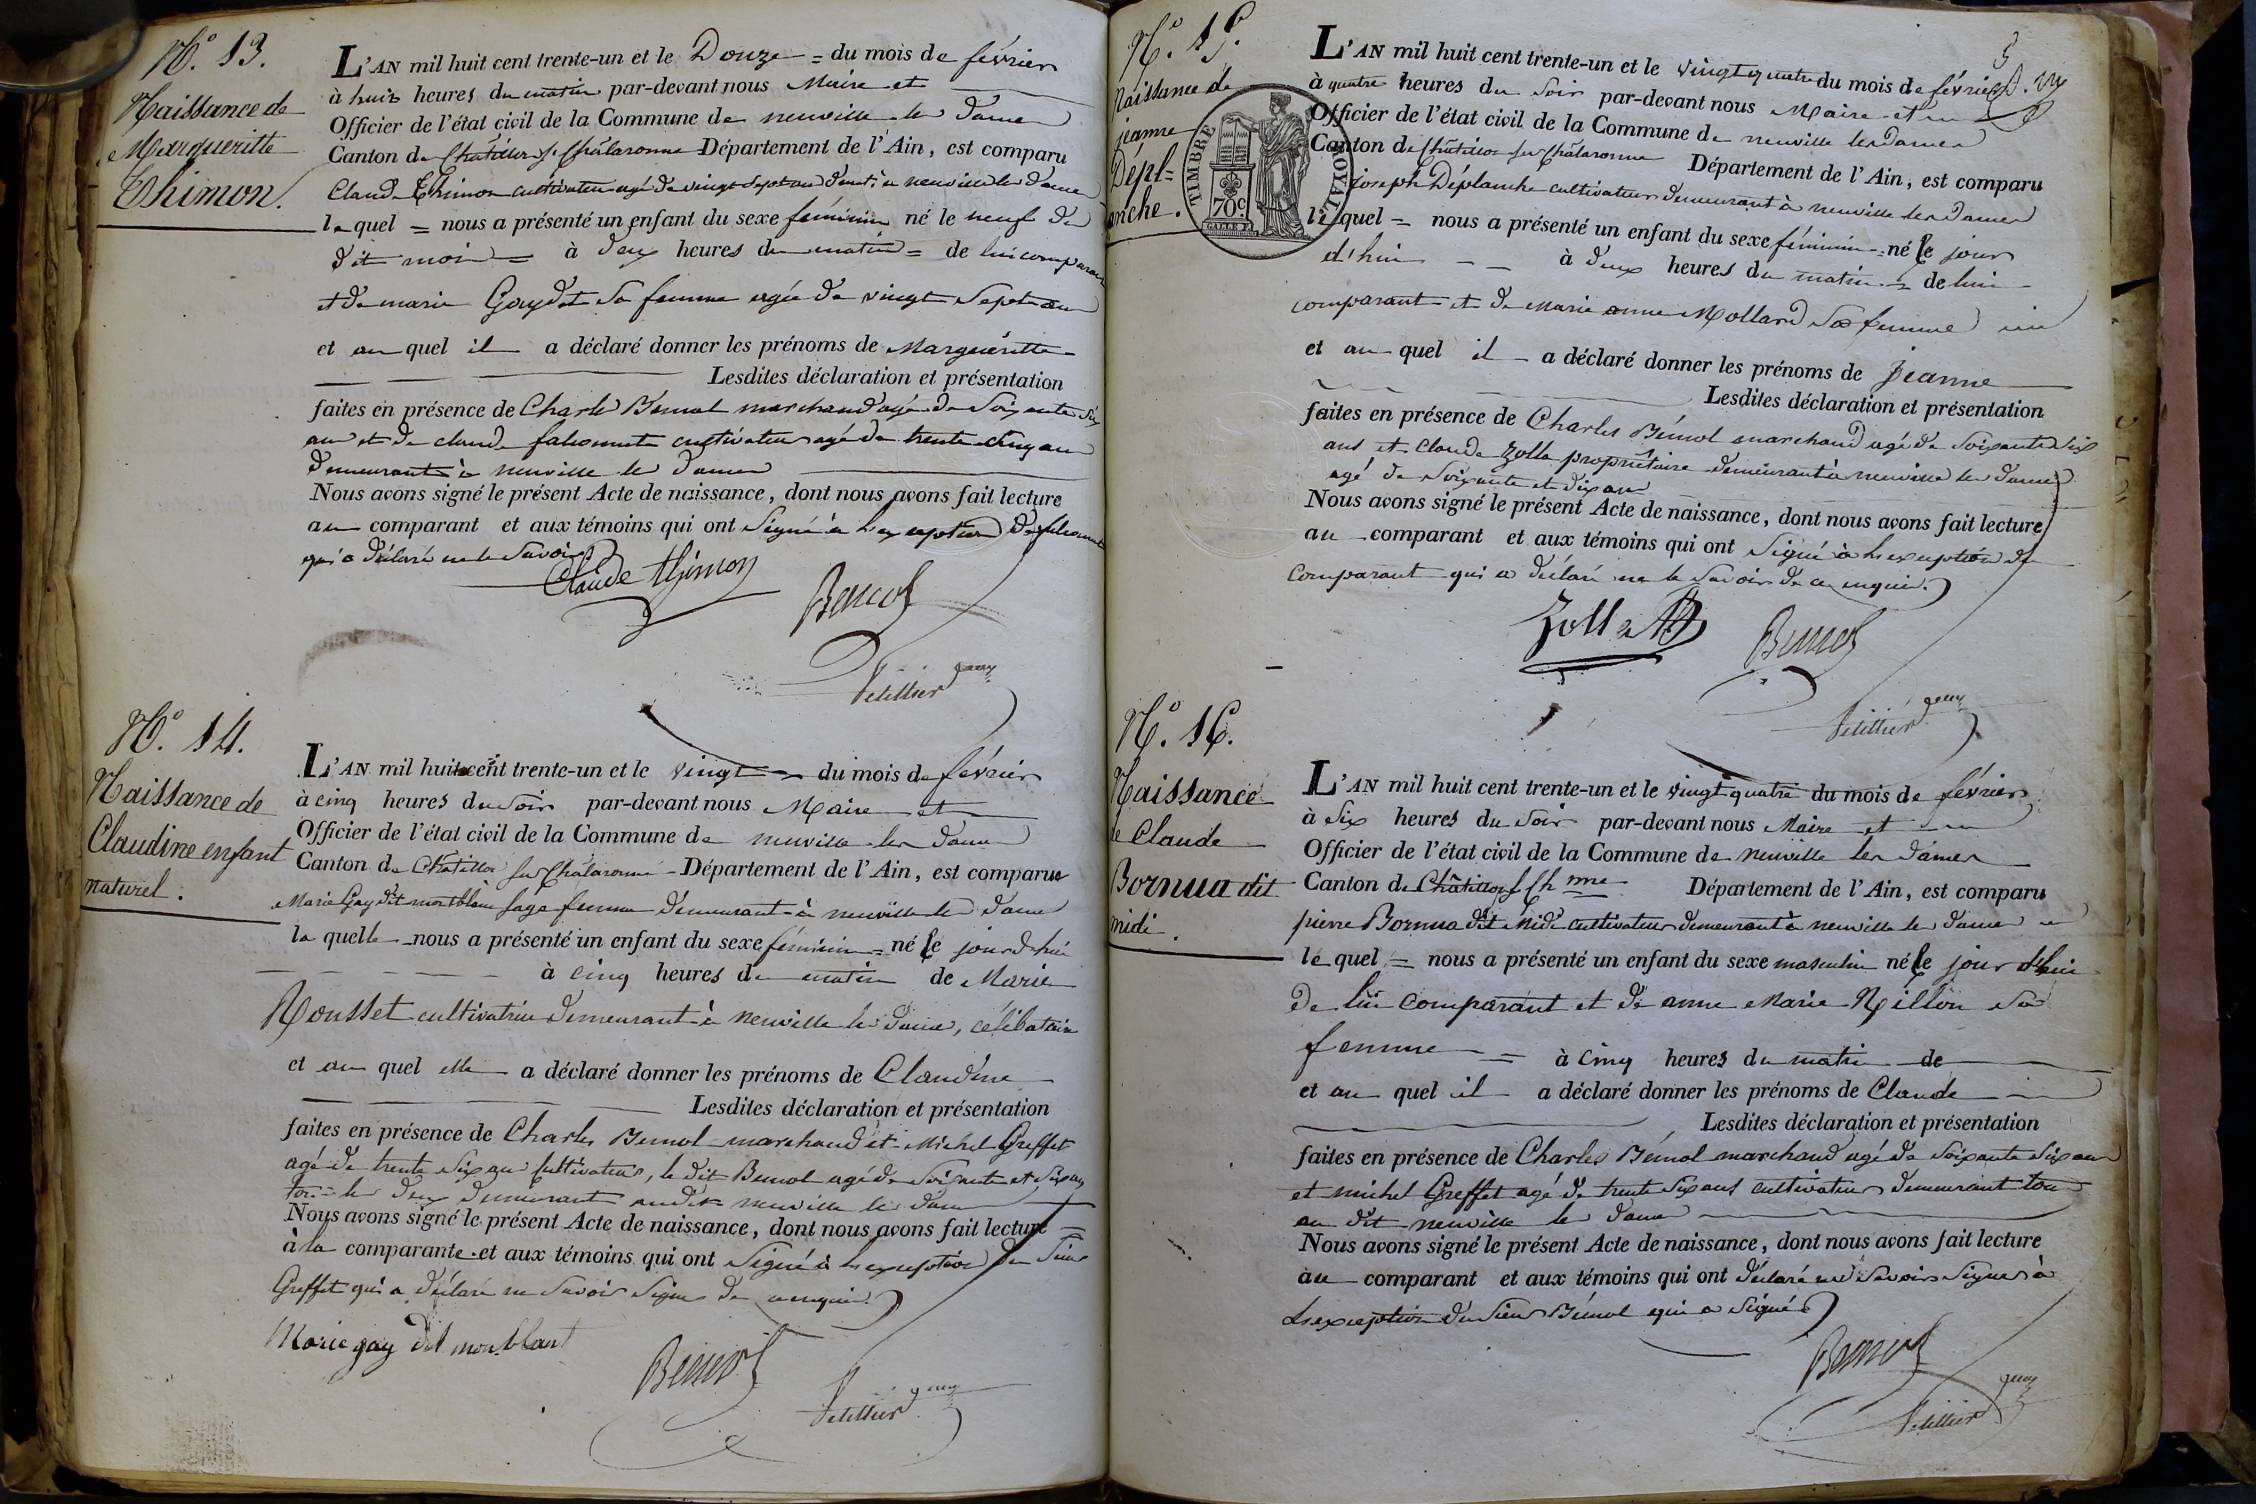 N.º 13.
Naissance de
Margueritte
Thimon.
L'AN mil huit cent trente-un et le Douze = du mois de février
à huit heures du matin par-devant nous Maire et
Officier de l'état civil de la Commune de neuville les Dames
Canton de Châtillon s/ Châlaronne Département de l'Ain, est comparu
Claude Thimon cultivateur agé de vingt Sept ans demt. à neuville les dames
le quel = nous a présenté un enfant du sexe féminin né le neuf du
dit mois = à deux heures du matin = de lui comparant
et de marie Gaydet sa femme agée de vingt Sept ans
et au quel il a déclaré donner les prénoms de Marguéritte
Lesdites déclaration et présentation
faites en présence de Charle Bémol marchand agé de Soixante Six
ans et de claude falconnet cultivateur agé de trente cinq ans
demeurants à neuville les dames
Nous avons signé le présent Acte de naissance, dont nous avons fait lecture
au comparant et aux témoins qui ont Signé à l'exception de falconnet
qui a déclaré ne le Savoir
Claude thimon
Bemol
Petillier
N.º 14.
Naissance de
Claudine enfant
naturel.
L'AN mil huit cent trente-un et le vingt du mois de février
à cinq heures du soir par-devant nous Maire et
Officier de l'état civil de la Commune de neuville les dames
Canton de Châtillon sur Châlaronne Département de l'Ain, est comparue
Marie Gay dit montblanc sage femme demeurant à neuville les dames
la quelle nous a présenté un enfant du sexe féminin = né le jour d'hui
à cinq heures du matin de Marie
Rousset cultivatrice demeurant à neuville les dames, célibataire
et au quel elle a déclaré donner les prénoms de Claudine
Lesdites déclaration et présentation
faites en présence de Charles Bemol marchand et Michel Greffet
agé de trente six ans cultivateur, le dit Bemol agé de Soixante et six ans
les deux demeurant audit neuville les dames
Nous avons signé le présent Acte de naissance, dont nous avons fait lecture
à la comparante et aux témoins qui ont Signé à l'exception du Sieur
Greffet qui a déclaré ne Savoir Signer de ce requis.
Marie gay dit mon blant
Bemol
Petillier
N.º 15.
Naissance de
jeanne
Dépl=
anche.
TIMBRE ROYAL
70c
L'AN mil huit cent trente-un et le vingt quatre du mois de février
à quatre heures du Soir par-devant nous Maire et
Officier de l'état civil de la Commune de neuville les dames
Canton de Châtillon sur Châlaronne Département de l'Ain, est comparu
joseph Déplanche cultivateur demeurant à neuville les dames
le quel = nous a présenté un enfant du sexe féminin = né le jour
d'hui à deux heures du matin = de lui
comparant et de Marie anne Mollard Sa femme
et au quel il a déclaré donner les prénoms de Jeanne
Lesdites déclaration et présentation
faites en présence de Charles Bémol marchand agé de Soixante Six
ans et Claude Zolla propriétaire demeurant à neuville les dames
agé de Soixante et dix ans
Nous avons signé le présent Acte de naissance, dont nous avons fait lecture
au comparant et aux témoins qui ont Signé à l'exception du
comparant qui a déclaré ne le Savoir de ce requis.
Zolla
Bemol
Petillier
N.º 16.
Naissance
de Claude
Bornua dit
midi.
L'AN mil huit cent trente-un et le vingt quatre du mois de février
à Six heures du Soir par-devant nous Maire et
Officier de l'état civil de la Commune de neuville les dames
Canton de Châtillon s Ch nne Département de l'Ain, est comparu
pierre Bornua dit Midi cultivateur demeurant à neuville les dames
le quel = nous a présenté un enfant du sexe masculin né le jour d'hui
de lui comparant et de anne Marie Nillon Sa
femme = à cinq heures du matin de
et au quel il a déclaré donner les prénoms de Claude
Lesdites déclaration et présentation
faites en présence de Charles Bémol marchand agé de Soixante Six ans
et michel Greffet agé de trente Six ans cultivateur demeurant tous
au dit neuville les dames
Nous avons signé le présent Acte de naissance, dont nous avons fait lecture
au comparant et aux témoins qui ont déclaré ne Savoir Signer à
L'exception du Sieur Bémol qui a Signé
Bemol
Petillier